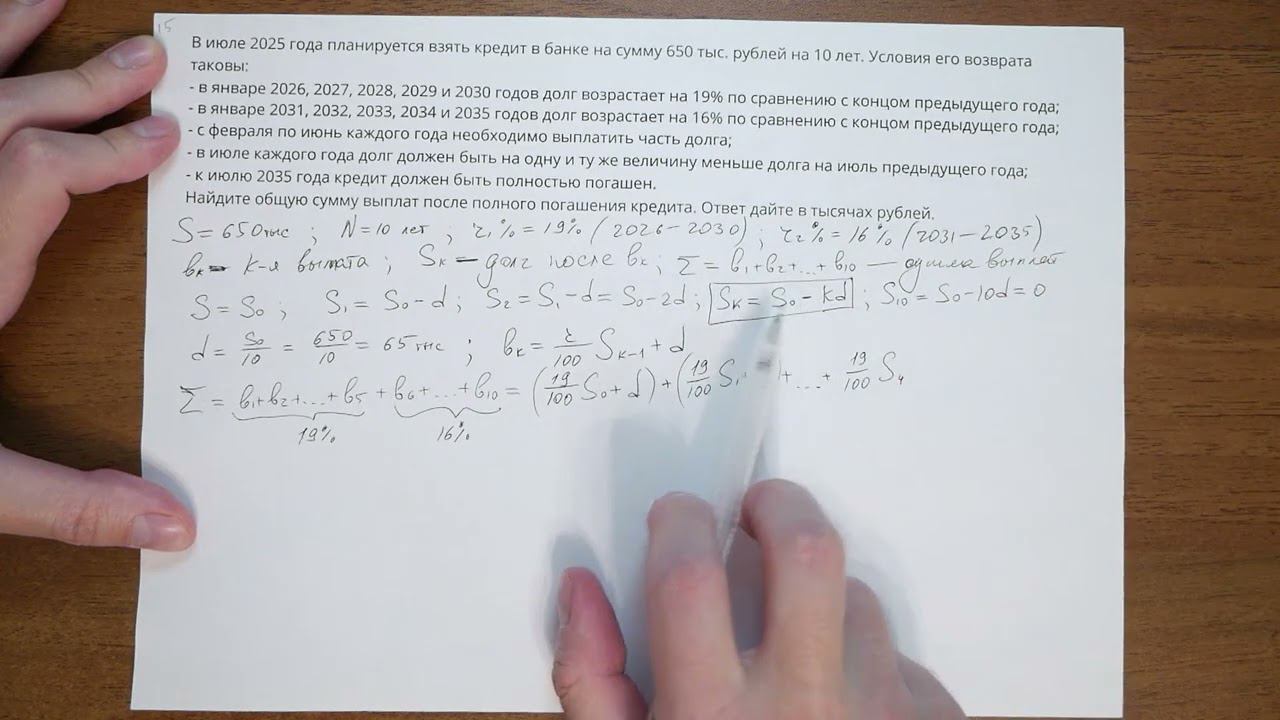 15
В июле 2025 года планируется взять кредит в банке на сумму 650 тыс. рублей на 10 лет. Условия его возврата
таковы:
- в январе 2026, 2027, 2028, 2029 и 2030 годов долг возрастает на 19% по сравнению с концом предыдущего года;
- в январе 2031, 2032, 2033, 2034 и 2035 годов долг возрастает на 16% по сравнению с концом предыдущего года;
- с февраля по июнь каждого года необходимо выплатить часть долга;
- в июле каждого года долг должен быть на одну и ту же величину меньше долга на июль предыдущего года;
- к июлю 2035 года кредит должен быть полностью погашен.
Найдите общую сумму выплат после полного погашения кредита. Ответ дайте в тысячах рублей.
S = 650 тыс ; N = 10 лет ; r₁% = 19% (2026 – 2030) ; r₂% = 16% (2031 – 2035)
bₖ – k-я выплата ; Sₖ – долг после bₖ ; Σ = b₁+b₂+...+b₁₀ — сумма выплат
S = S₀ ; S₁ = S₀ – d ; S₂ = S₁ – d = S₀ – 2d ; Sₖ = S₀ – kd ; S₁₀ = S₀ – 10d = 0
d = S₀/10 = 650/10 = 65 тыс ; bₖ = r/100 Sₖ₋₁ + d
Σ = b₁+b₂+...+b₅ + b₆+...+b₁₀ = (19/100 S₀ + d) + (19/100 S₁ ) + ... + 19/100 S₄
19% 16%